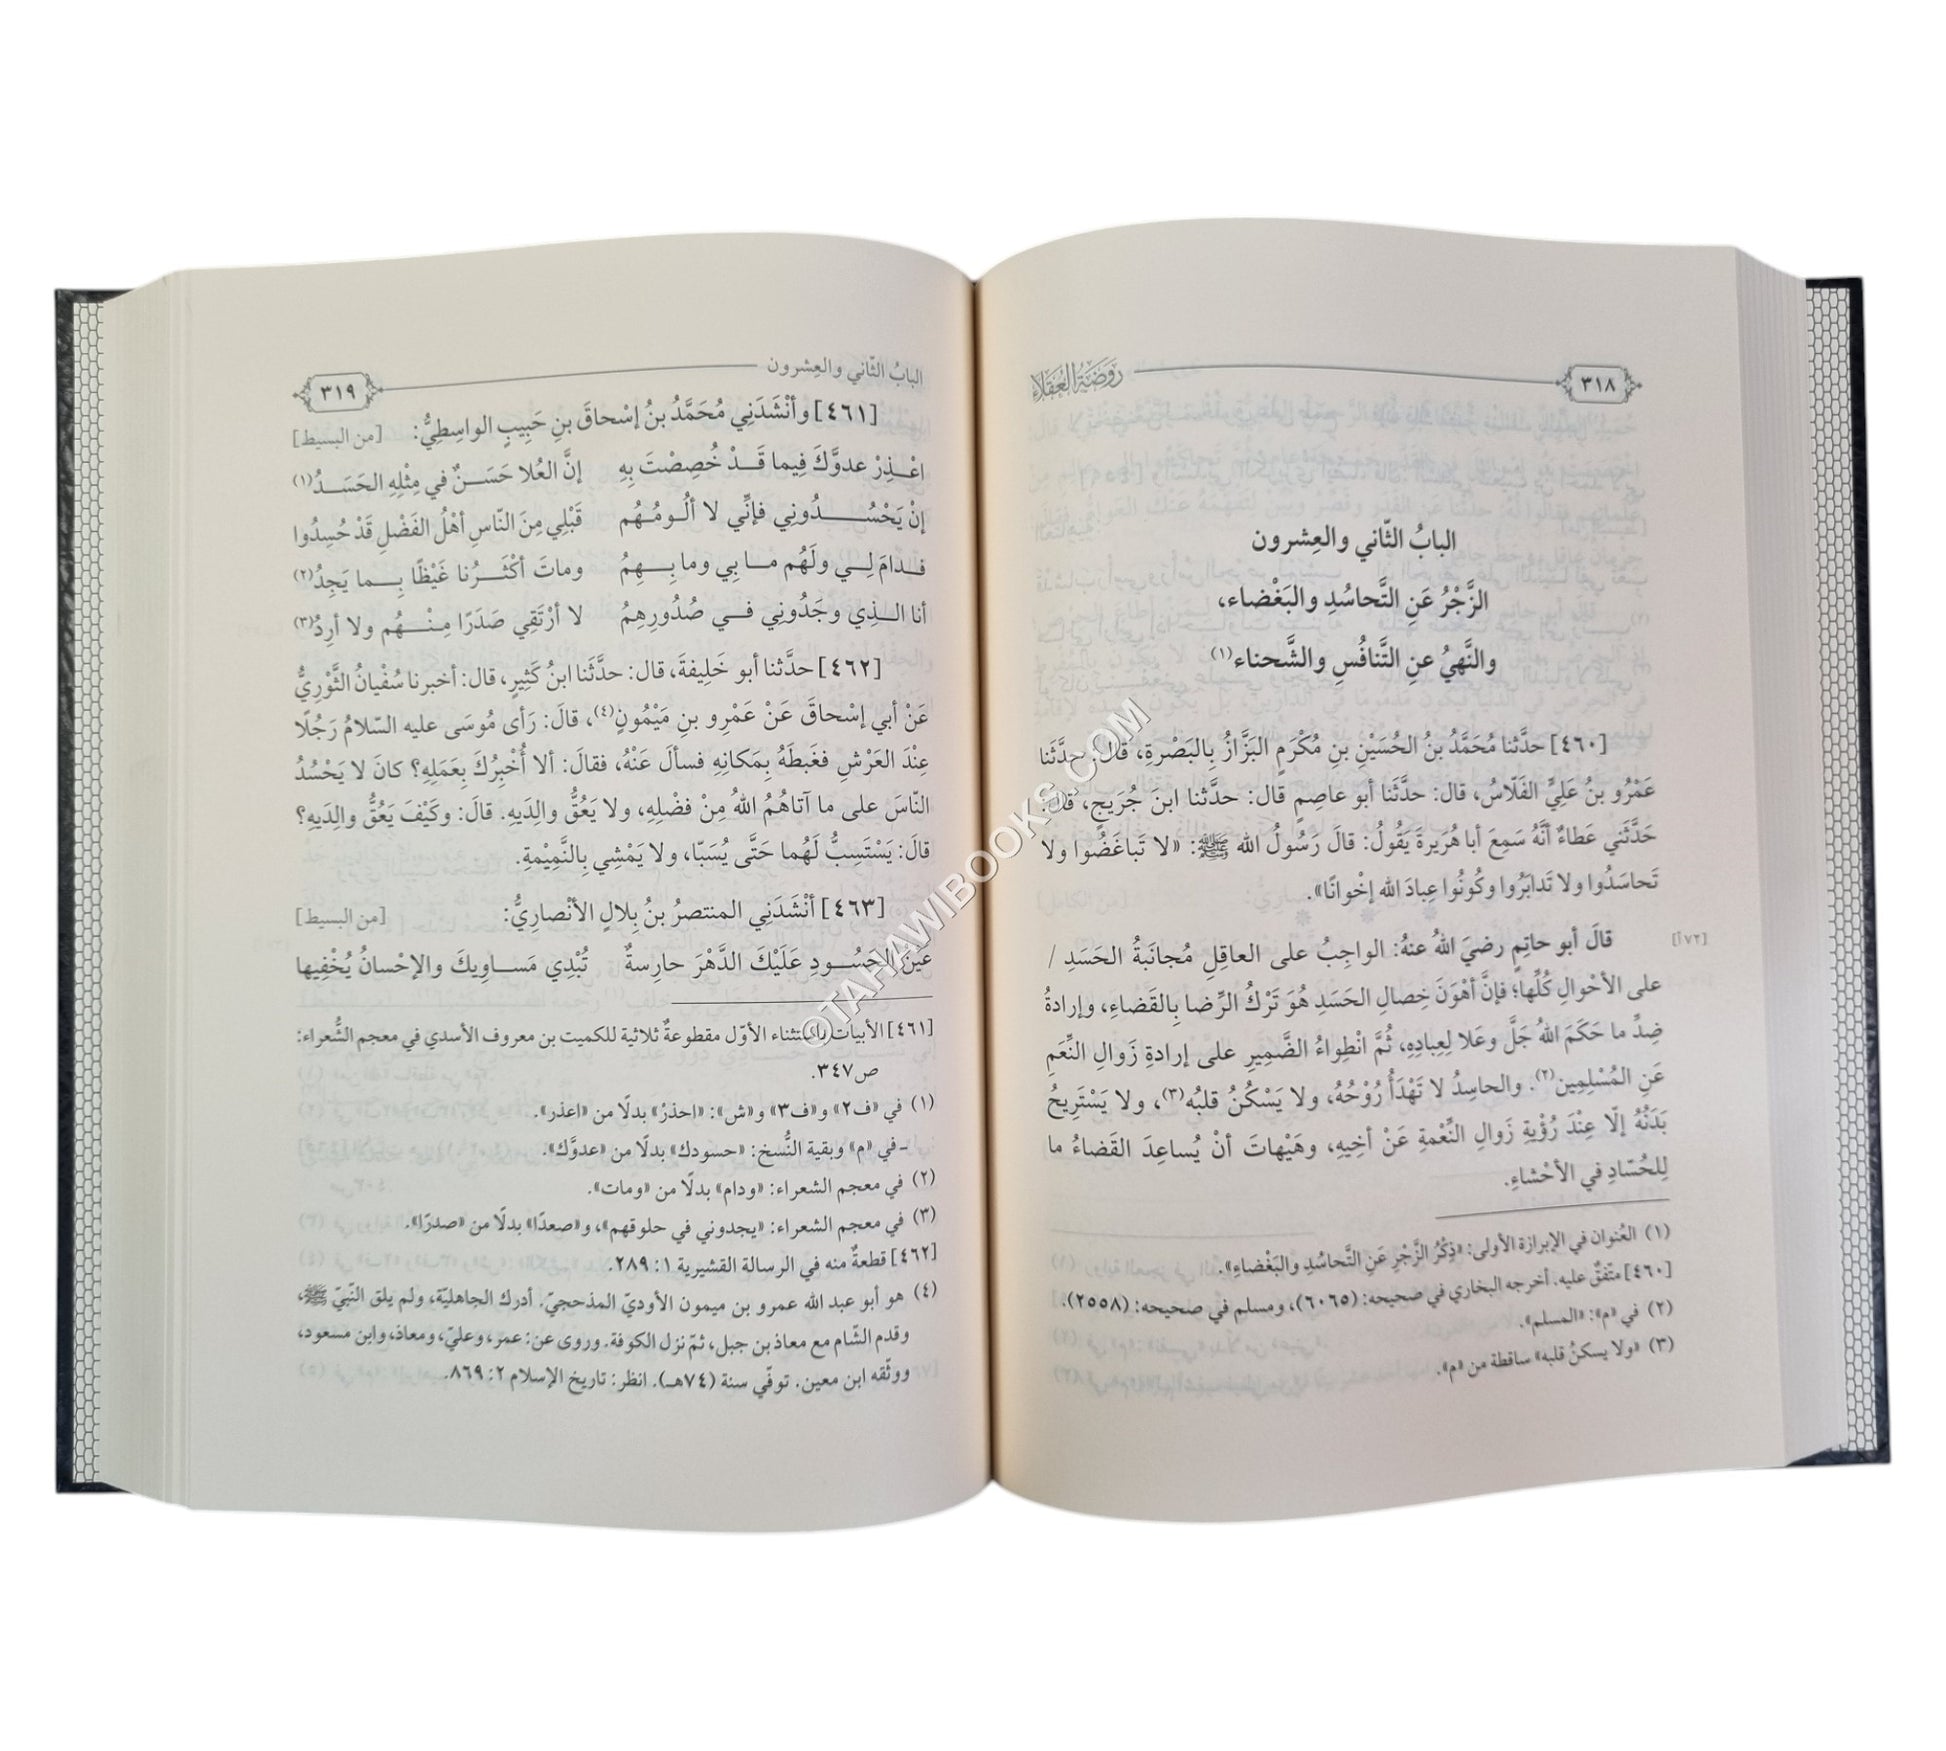 ٣١٨
رَوضَةُ العُقَلاء
البابُ الثّاني والعِشرون
الزَّجْرُ عَنِ التَّحاسُدِ والبَغْضاء،
والنَّهيُ عنِ التَّنافُسِ والشَّحناء(١)
[٤٦٠] حدَّثنا مُحَمَّدُ بنُ الحُسَيْنِ بنِ مُكْرَمٍ البَزَّازُ بِالبَصْرةِ، قال: حدَّثَنا
عَمْرُو بنُ عَلِيٍّ الفَلّاسُ، قال: حدَّثَنا أبو عاصِمٍ قال: حدَّثنا ابنَ جُرَيجٍ، قال:
حَدَّثَني عَطاءٌ أنَّهُ سَمِعَ أبا هُرَيرةَ يَقُولُ: قالَ رَسُولُ الله ﷺ: «لا تَباغَضُوا ولا
تَحاسَدُوا ولا تَدابَرُوا وكُونُوا عِبادَ الله إخْوانًا».
قالَ أبو حاتِمٍ رضيَ اللهُ عنهُ: الواجِبُ على العاقِلِ مُجانَبةُ الحَسَدِ /
[٧٢أ]
على الأحْوالِ كُلِّها؛ فإنَّ أهْوَنَ خِصالِ الحَسَدِ هُوَ تَرْكُ الرِّضا بِالقَضاءِ، وإرادةُ
ضِدِّ ما حَكَمَ اللهُ جَلَّ وعَلا لِعِبادِهِ، ثُمَّ انْطِواءُ الضَّمِيرِ على إرادةِ زَوالِ النِّعَمِ
عَنِ المُسْلِمِين(٢). والحاسِدُ لا تَهْدَأُ رُوْحُهُ، ولا يَسْكُنُ قلبُه(٣)، ولا يَسْتَرِيحُ
بَدَنُهُ إلّا عِنْدَ رُؤْيةِ زَوالِ النِّعْمةِ عَنْ أخِيهِ، وهَيْهاتَ أنْ يُساعِدَ القَضاءُ ما
لِلحُسّادِ في الأحْشاءِ.
(١) العُنوان في الإبرازة الأولى: «ذِكْرُ الزَّجْرِ عَنِ التَّحاسُدِ والبَغْضاءِ».
[٤٦٠] متّفقٌ عليه. أخرجه البخاري في صحيحه: (٦٠٦٥)، ومسلم في صحيحه: (٢٥٥٨).
(٢) في «م»: «المسلم».
(٣) «ولا يسكنُ قلبه» ساقطة من «م».
البابُ الثّاني والعِشرون
٣١٩
[٤٦١] وأنْشَدَنِي مُحَمَّدُ بنُ إسْحاقَ بنِ حَبِيبٍ الواسِطِيُّ: [من البسيط]
اعْـذِرْ عدوَّكَ فِيما قَـدْ خُصِصْتَ بِهِ إنَّ العُلا حَسَـنٌ في مِثْلِهِ الحَسَـدُ(١)
إنْ يَحْسُـدُوني فإنِّي لا ألُـومُـهُم قَبْلِي مِنَ النّاسِ أهْلُ الفَضْلِ قَدْ حُسِدُوا
فـدامَ لِـي ولَهُم مـا بِي وما بِـهِمُ وماتَ أكْثَـرُنا غَيْظًا بِـما يَجِدُ(٢)
أنا الـذِي وجَدُونِي فـي صُدُورِهِمُ لا أرْتَقِي صَدَرًا مِنْـهُم ولا أرِدُ(٣)
[٤٦٢] حدَّثنا أبو خَلِيفةَ، قال: حدَّثَنا ابنُ كَثِيرٍ، قال: أخبرنا سُفْيانُ الثَّوْرِيُّ
عَنْ أبي إسْحاقَ عَنْ عَمْرِو بنِ مَيْمُونٍ(٤)، قالَ: رَأى مُوسَى عليه السّلامُ رَجُلًا
عِنْدَ العَرْشِ فغَبَطَهُ بِمَكانِهِ فسألَ عَنْهُ، فقالَ: ألا أُخْبِرُكَ بِعَمَلِهِ؟ كانَ لا يَحْسُدُ
النّاسَ على ما آتاهُمُ اللهُ مِنْ فضْلِهِ، ولا يَعُقُّ والِدَيهِ. قالَ: وكَيْفَ يَعُقُّ والِدَيهِ؟
قالَ: يَسْتَسِبُّ لَهُما حَتَّى يُسَبّا، ولا يَمْشِي بِالنَّمِيْمةِ.
[٤٦٣] أنْشَدَنِي المنتصرُ بنُ بِلالٍ الأنْصارِيُّ: [من البسيط]
عَينُ الحَسُـودِ عَلَيْكَ الدَّهْرَ حارِسةٌ تُبْدِي مَسـاوِيكَ والإحْسانُ يُخْفِيها
[٤٦١] الأبيات باستثناء الأوّل مقطوعةٌ ثلاثية للكميت بن معروف الأسدي في معجم الشُّعراء:
ص٣٤٧.
(١) في «ف٢» و«ف٣» و«ش»: «احذرْ» بدلًا من «اعذر».
- في «م» وبقية النُّسخ: «حسودك» بدلًا من «عدوَّك».
(٢) في معجم الشعراء: «ودام» بدلًا من «ومات».
(٣) في معجم الشعراء: «يجدوني في حلوقهم»، و«صعدًا» بدلًا من «صدرًا».
[٤٦٢] قطعةٌ منه في الرسالة القشيرية ١: ٢٨٩.
(٤) هو أبو عبد الله عمرو بن ميمون الأوديّ المذحجيّ. أدرك الجاهليّة، ولم يلق النّبيّ ﷺ،
وقدم الشّام مع معاذ بن جبل، ثمّ نزل الكوفة. وروى عن: عمر، وعليّ، ومعاذ، وابن مسعود،
ووثّقه ابن معين. توفّي سنة (٧٤هـ). انظر: تاريخ الإسلام ٢: ٨٦٩.
©TAHAWIBOOKS.COM